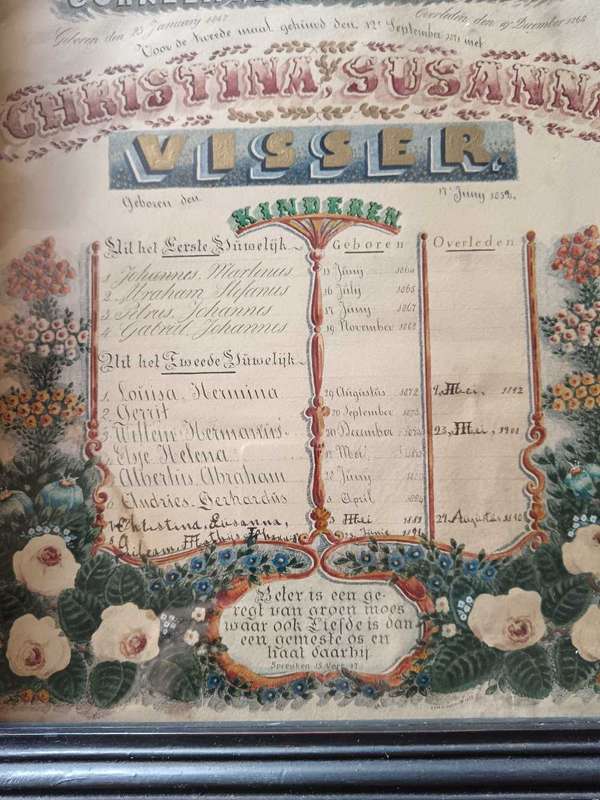 Geboren den 23 January 1842 Overleden, den 19 December 1868
Voor de tweede maal gehuwd den 12e September 1871 met
CHRISTINA, SUSANNA
VISSER.
Geboren den 17 Juny 1852.
KINDEREN
Uit het Eerste Huwelijk Geboren Overleden
1 Johannes Martinus 13 Juny
2 Abraham Stefanus 16 July 1865
3 Petrus Johannes 17 Juny 1867
4 Gabriël Johannes 19 November
Uit het Tweede Huwelijk
1. Louisa Hermina 29 Augustus 1872 Mei,
2 Gerrit 10 September
3 Willem Hermanus 20 December 23, Mei, 1901
Elsje Helena Mei
Albertus Abraham Juny
Andries Gerhardus April
Christina, Susanna, 3 Mei 29, Augustus
Gileam, Mathys Johannes Junie
Beter is een ge-
regt van groen moes
waar ook Liefde is dan
een gemeste os en
haat daarbij.
Spreuken 15 Vers 17